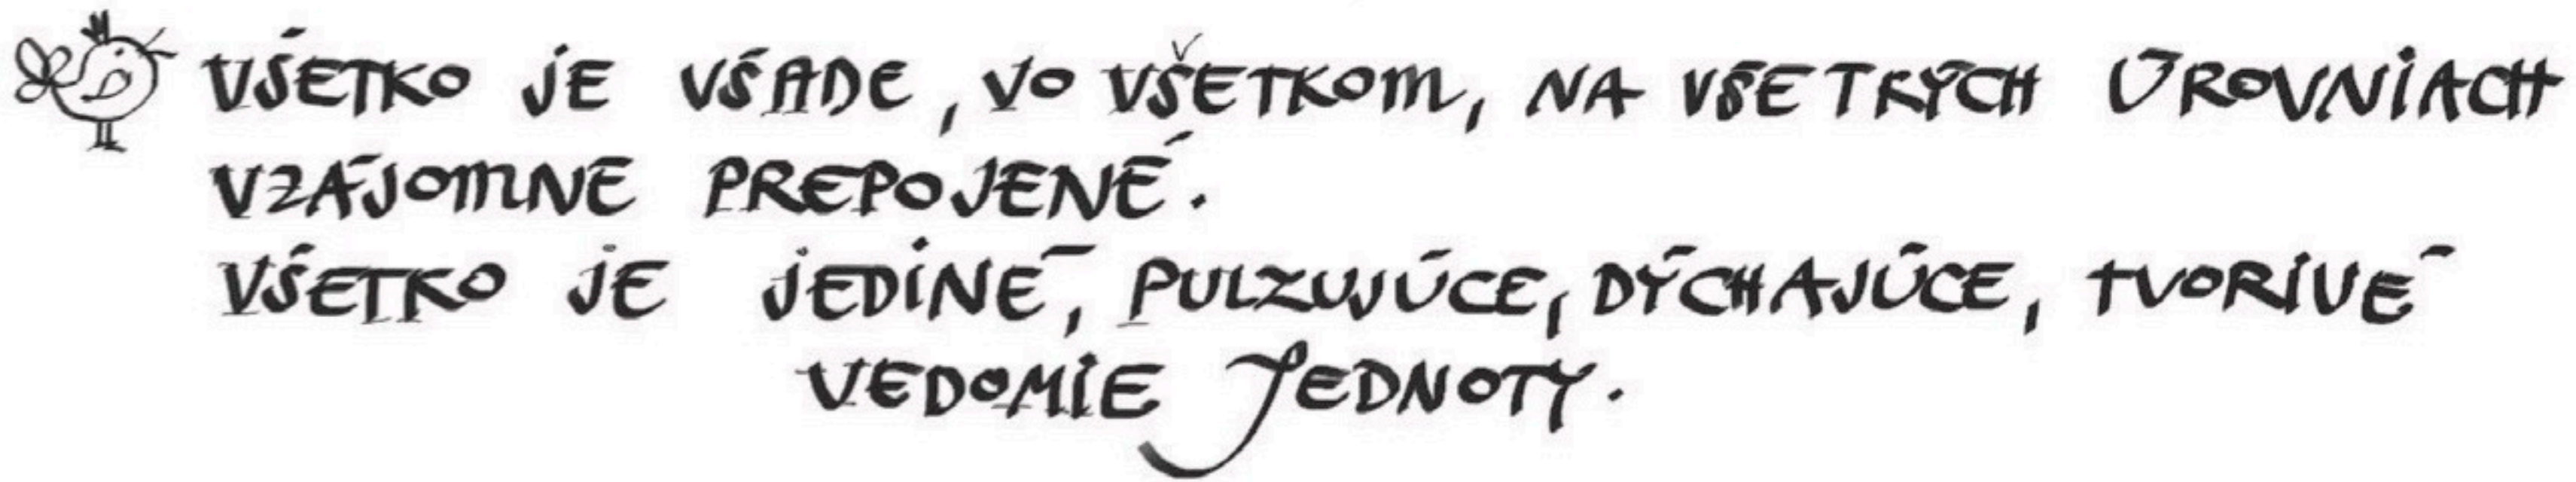 VŠETKO JE VŠADE, VO VŠETKOM, NA VŠETKÝCH ÚROVNIACH
VZÁJOMNE PREPOJENÉ.
VŠETKO JE JEDINÉ, PULZUJÚCE, DÝCHAJÚCE, TVORIVÉ
VEDOMIE JEDNOTY.